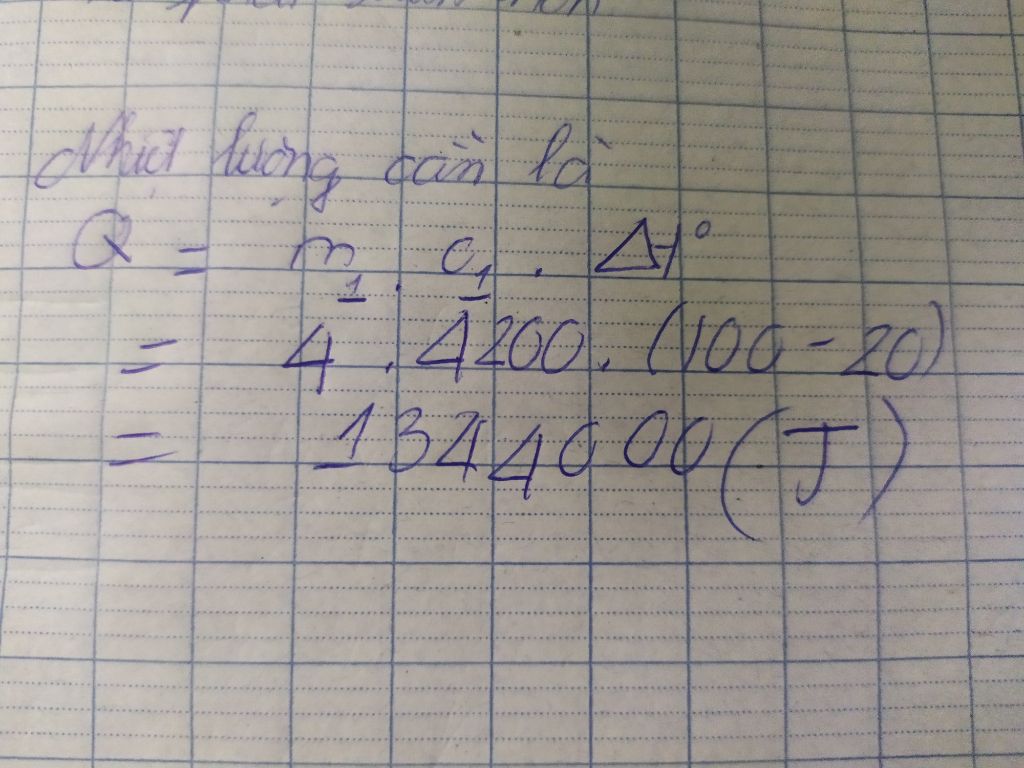 Nhiệt lượng cần là
Q = m₁ . c₁ . Δt°
= 4 . 4200 . (100 - 20)
= 1344000 (J)